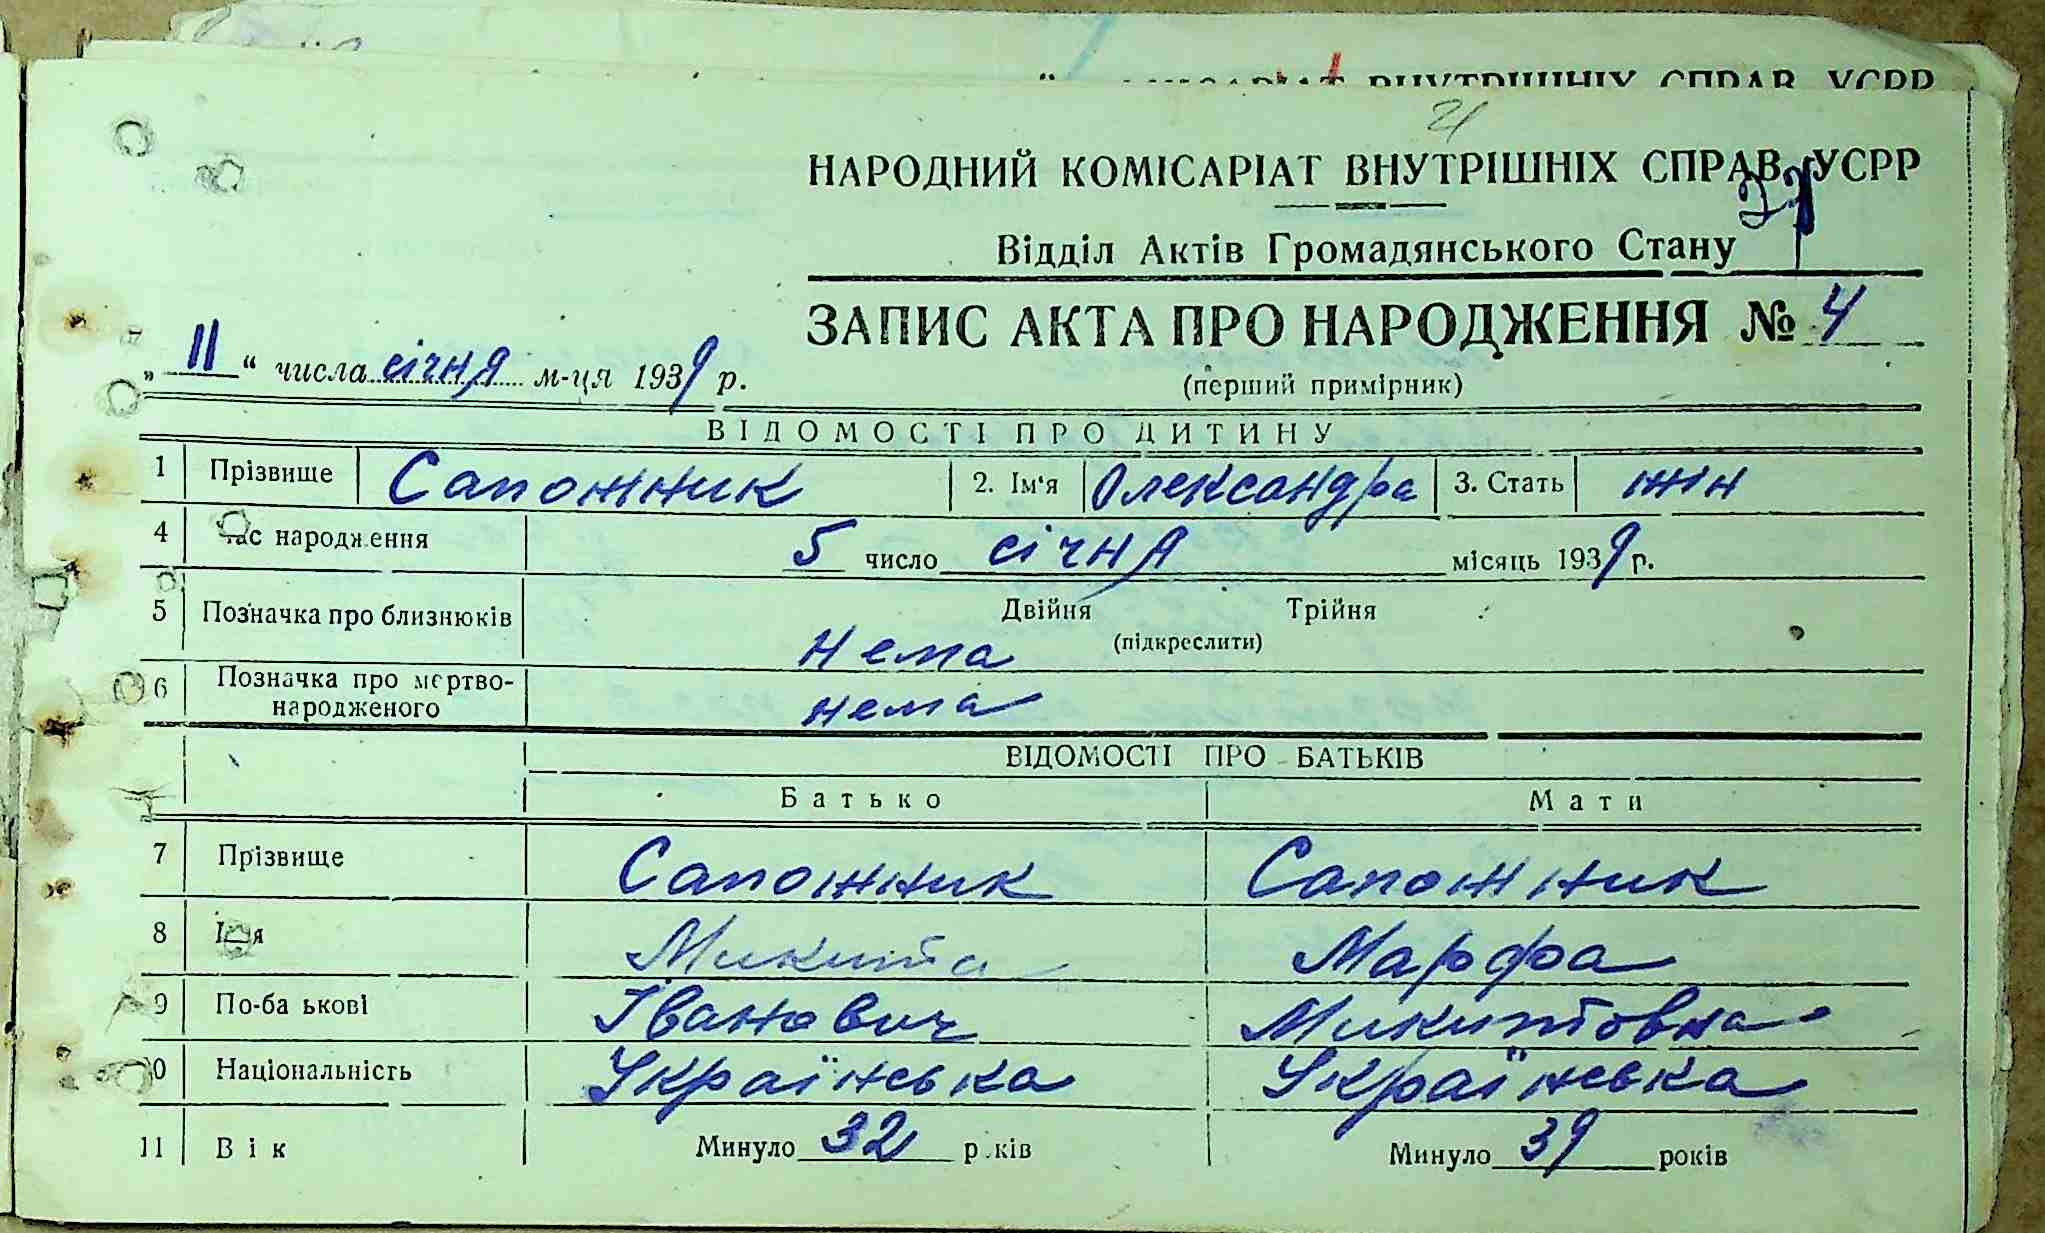 НАРОДНИЙ КОМІСАРІАТ ВНУТРІШНІХ СПРАВ УСРР
Відділ Актів Громадянського Стану
ЗАПИС АКТА ПРО НАРОДЖЕННЯ № 4
„ 11 “ числа січня м-ця 1939 р.
(перший примірник)
ВІДОМОСТІ ПРО ДИТИНУ
1 Прізвище Сапожник 2. Ім‘я Олександра 3. Стать жін
4 Час народження 5 число січня місяць 1939 р.
5 Позначка про близнюків Двійня Трійня
(підкреслити)
Нема
6 Позначка про мертво-
народженого нема
ВІДОМОСТІ ПРО БАТЬКІВ
Батько Мати
7 Прізвище Сапожник Сапожник
8 Ім‘я Микита Марфа
9 По-ба ькові Іванович Микитовна
10 Національність Українська Українська
11 Вік Минуло 32 р.ків Минуло 39 років